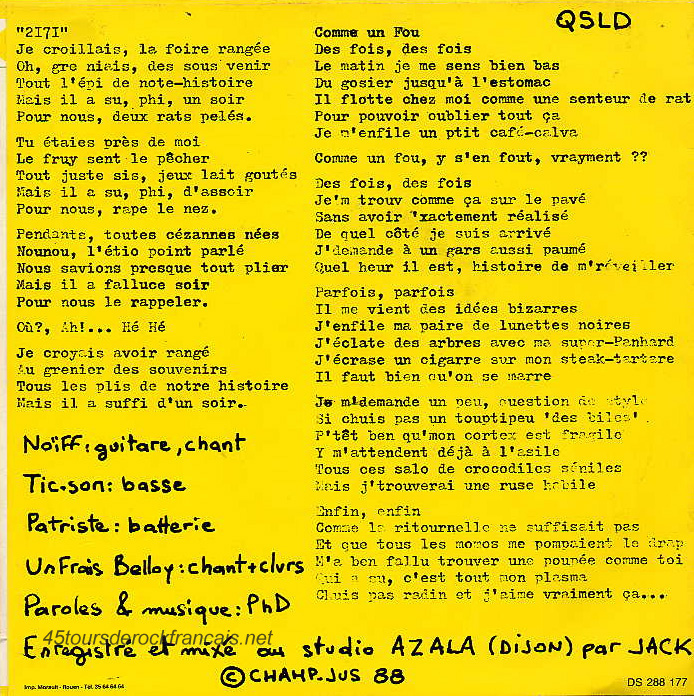 QSLD
"2I7I"
Je croillais, la foire rangée
Oh, gre niais, des sous venir
Tout l'épi de note-histoire
Mais il a su, phi, un soir
Pour nous, deux rats pelés.
Tu étaies près de moi
Le fruy sent le pêcher
Tout juste sis, jeux lait goutés
Mais il a su, phi, d'assoir
Pour nous, rape le nez.
Pendants, toutes cézannes nées
Nounou, l'étio point parlé
Nous savions presque tout plier
Mais il a falluce soir
Pour nous le rappeler.
Où?, Ah!... Hé Hé
Je croyais avoir rangé
Au grenier des souvenirs
Tous les plis de notre histoire
Mais il a suffi d'un soir.
Noïff: guitare, chant
Tic.son: basse
Patriste: batterie
Un Frais Belloy: chant+clvrs
Paroles & musique: PhD
Comme un Fou
Des fois, des fois
Le matin je me sens bien bas
Du gosier jusqu'à l'estomac
Il flotte chez moi comme une senteur de rat
Pour pouvoir oublier tout ça
Je m'enfile un ptit café-calva
Comme un fou, y s'en fout, vrayment ??
Des fois, des fois
Je'm trouv comme ça sur le pavé
Sans avoir 'xactement réalisé
De quel côté je suis arrivé
J'demande à un gars aussi paumé
Quel heur il est, histoire de m'réveiller
Parfois, parfois
Il me vient des idées bizarres
J'enfile ma paire de lunettes noires
J'éclate des arbres avec ma super-Panhard
J'écrase un cigarre sur mon steak-tartare
Il faut bien qu'on se marre
Je m'demande un peu, question de style
Si chuis pas un touptipeu 'des biles'.
P'têt ben qu'mon cortex est fragile
Y m'attendent déjà à l'asile
Tous ces salo de crocodiles séniles
Mais j'trouverai une ruse habile
Enfin, enfin
Comme la ritournelle ne suffisait pas
Et que tous les momos me pompaient le drap
M'a ben fallu trouver une poupée comme toi
Qui a su, c'est tout mon plasma
Chuis pas radin et j'aime vraiment ça...
45toursderockfrancais.net
Enregistré et mixé au studio AZALA (DIJON) par JACK
© CHAMP.JUS 88
Imp. Morault - Rouen - Tél. 35 64 64 54
DS 288 177